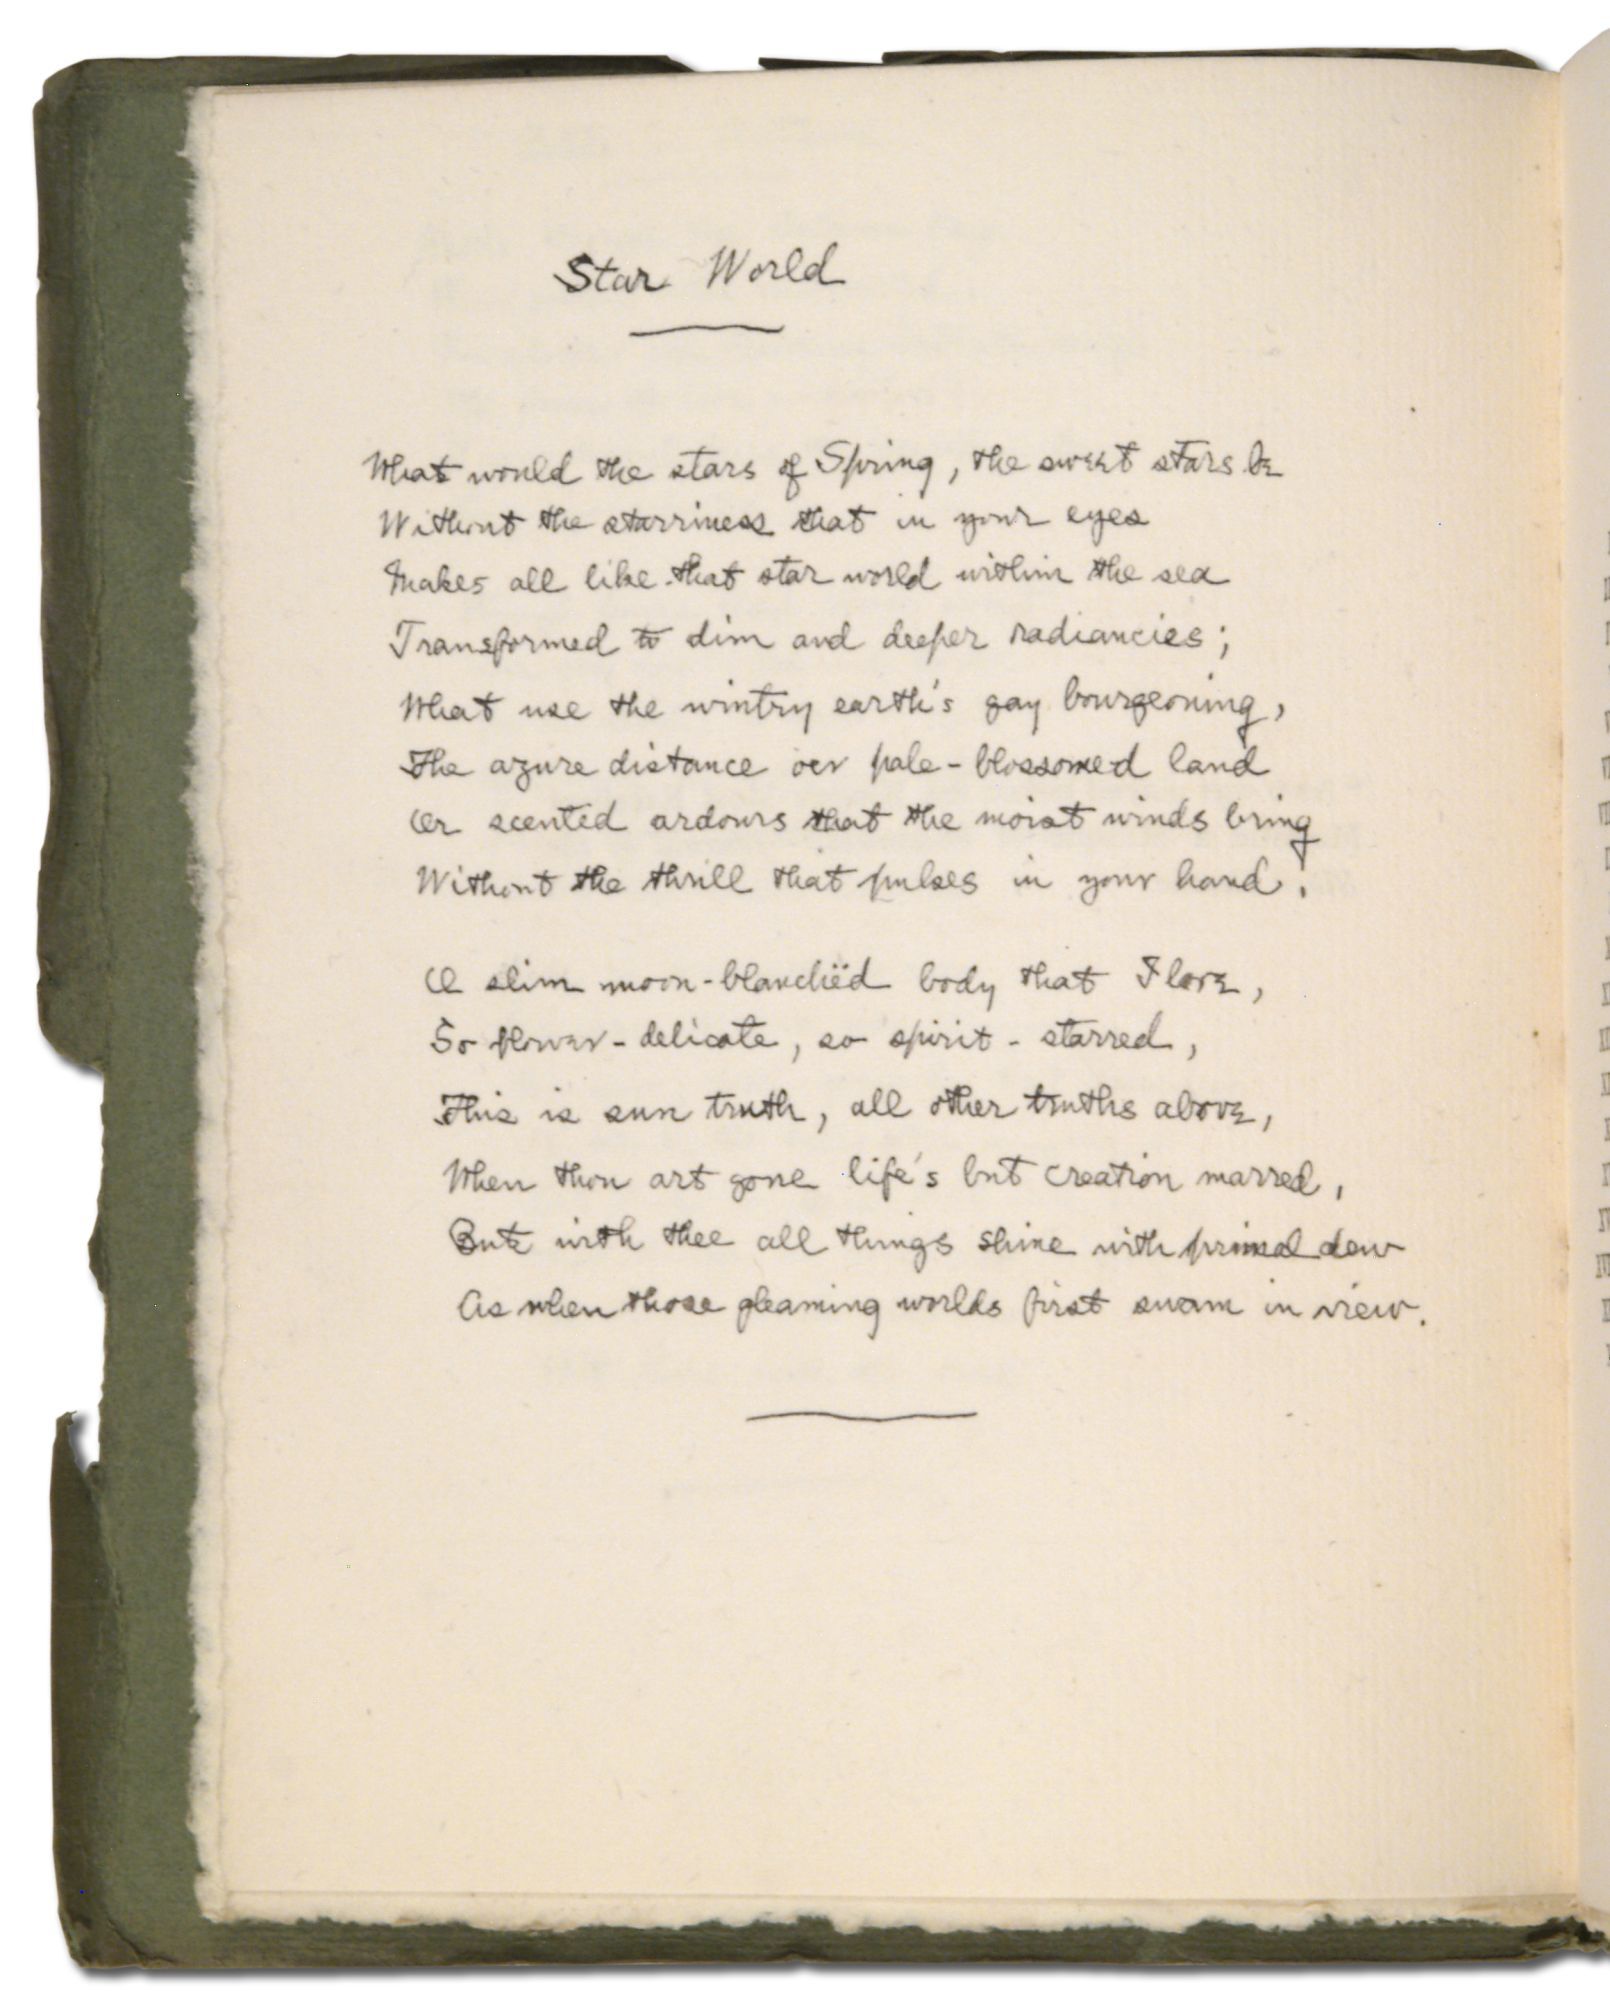 Star World
What would the stars of Spring, the sweet stars be
Without the starriness that in your eyes
Makes all like that star world within the sea
Transformed to dim and deeper radiancies;
What use the wintry earth's gay bourgeoning,
The azure distance oer pale-blossomed land
Or scented ardours that the moist winds bring
Without the thrill that pulses in your hand.
O slim moon-blanchëd body that I love,
So flower-delicate, so spirit-starred,
This is sun truth, all other truths above,
When thou art gone life's but creation marred,
But with thee all things shine with primal dew
As when those gleaming worlds first swam in view.